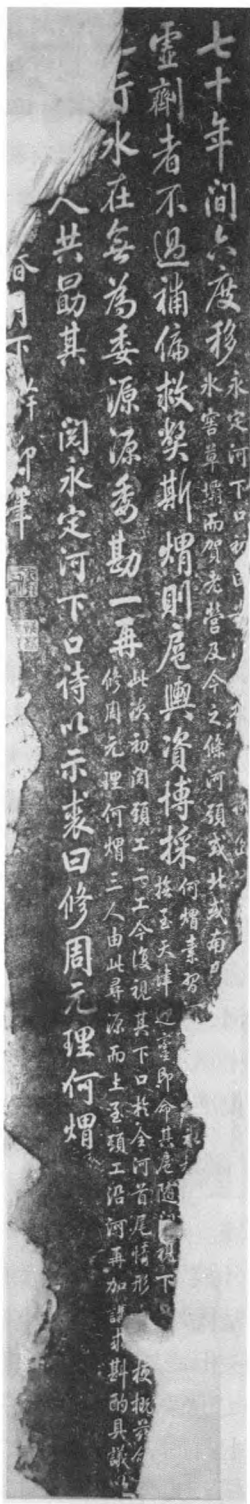 七十年間六度移
永定河下口初由
冰窖草壩而賀老營及今之條河頭或北或南
靈劑者不過補偏救獘斯煟則扈輿資博採
何煟素習
至天津迎鑾即命其扈隨 視下
一行水在無為委源源委勘一再
此次初閱頭工二工今復視其下口於全河首尾情形
修周元理何煟三人由此尋源而上至頭工沿河再加講求斟酌具議以
人共勗其 閱永定河下口詩以示裘曰修周元理何煟
春月下澣御筆